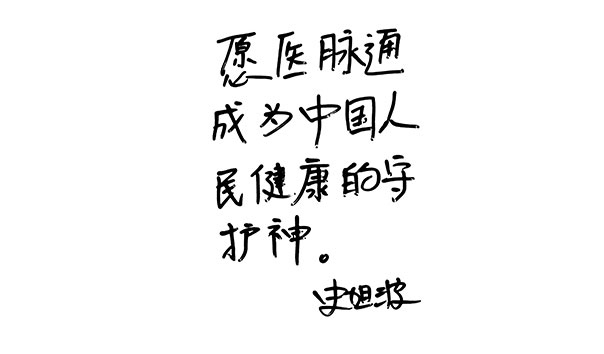 愿医脉通
成为中国人
民健康的守
护神。